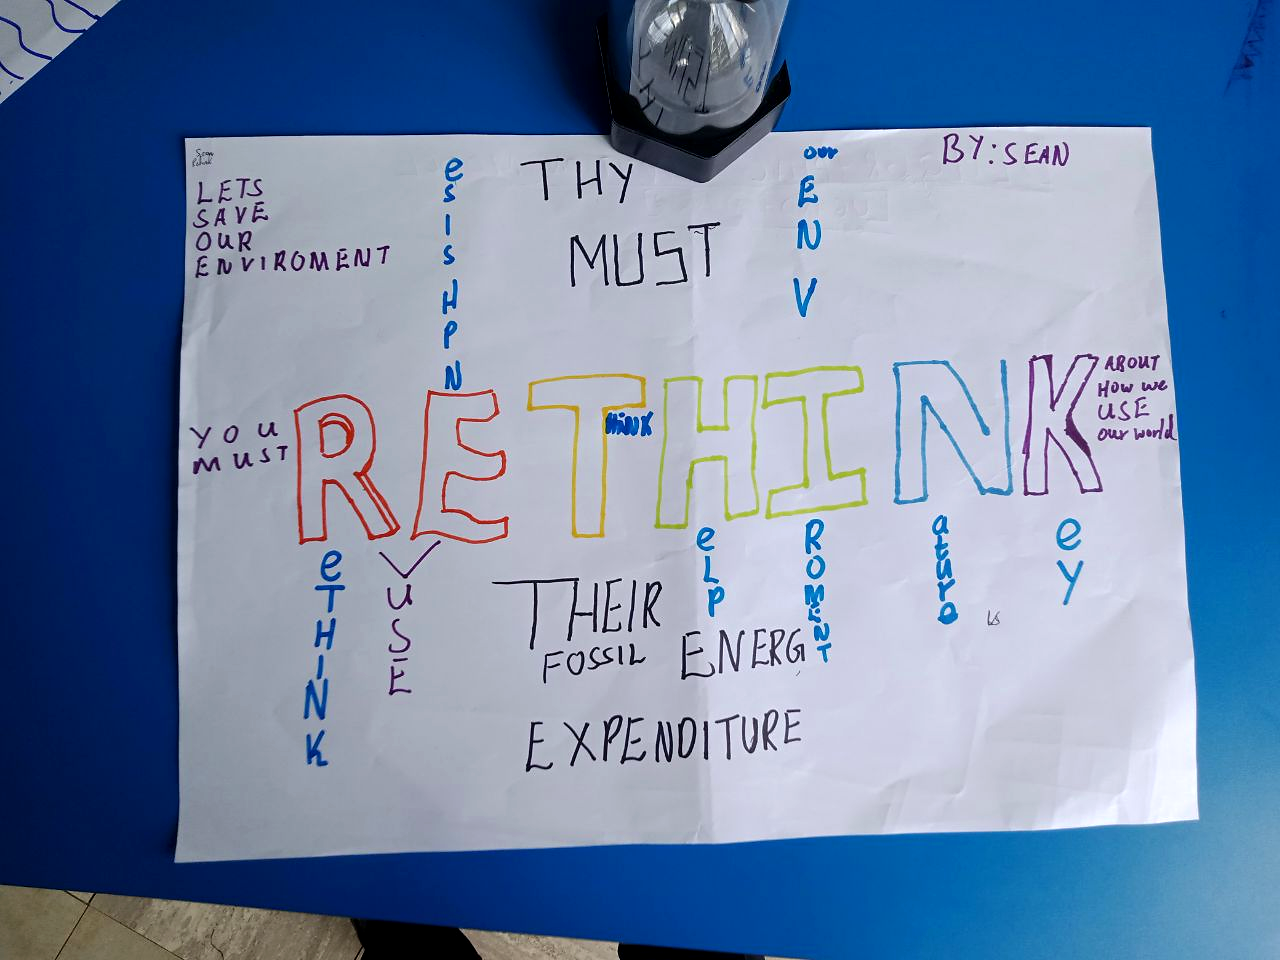 BY: SEAN
LETS
SAVE
OUR
ENVIROMENT
eSISHPN
THY
MUST
our
ENV
YOU
MUST
RETHINK
HiNK
ABOUT
HOW we
USE
our world
eTHINK
USE
eLP
ROMENT
ature
is
ey
THEIR
FOSSIL ENERG
EXPENDITURE